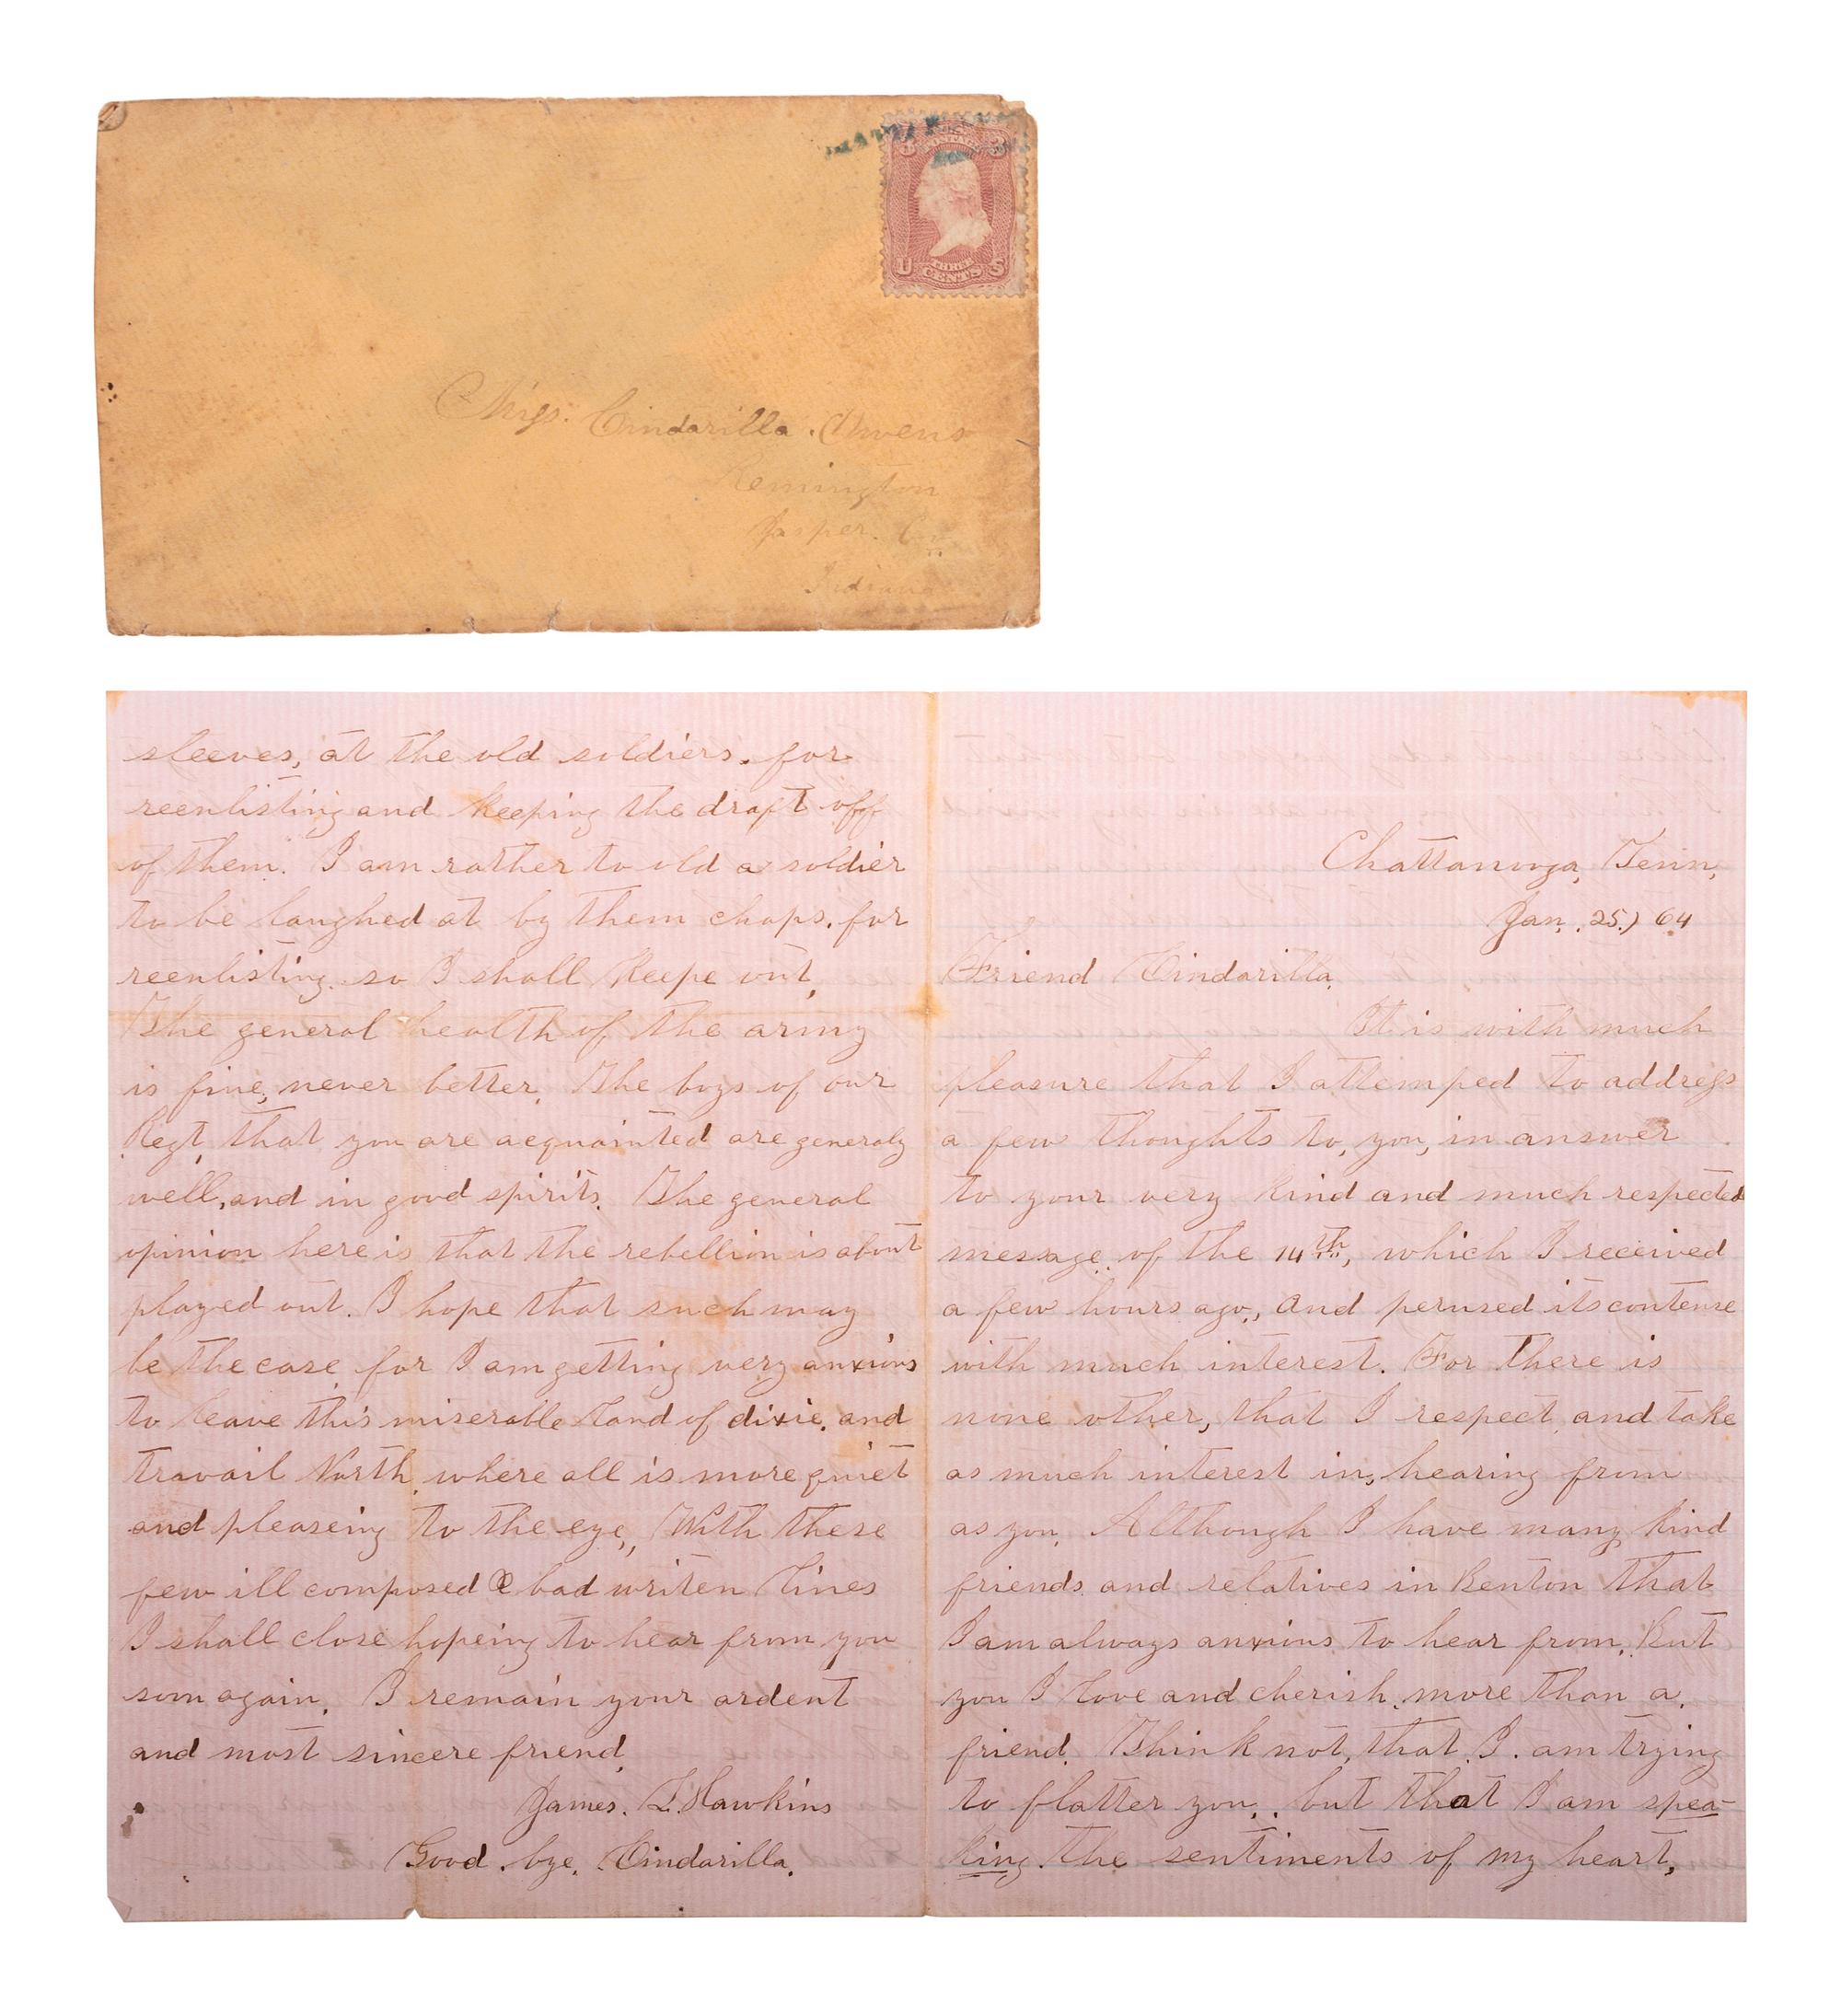 3 3
U THREE CENTS S
Miss. Cindarilla. Owens
Remington
Jasper. Co.
Indiana
Chattanooga, Tenn,
Jan,. 25,) 64
Friend Cindarilla,
It is with much
pleasure that I attemped to address
a few thoughts to, you, in answer
to your very kind and much respected
message. of the 14th, which I received
a few hours ago., and perused its contense
with much interest. For there is
none other, that I respect, and take
as much interest in, hearing from
as you, Although I have many kind
friends and relatives in Benton that
I am always anxious to hear from, But
you I love and cherish. more than a.
friend. Think not, that. I. am trying
to flatter you,. but that I am spea-
king. the sentiments of my heart,
sleeves, at the old soldiers. for
reenlisting and keeping the draft off
of them. I am rather to old a soldier
to be laughed at by them chaps. for
reenlisting. so I shall keepe out,
The general health of the army
is fine, never better. The boys of our
Regt, that you are aequainted are generaly
well, and in good spirits. The general
opinion here is that the rebellion is about
played out. I hope that such may
be the case for I am getting very anxious
to leave this miserable land of dixie. and
travail North, where all is more quiet
and pleaseing to the eye,, With these
few ill composed & bad writen lines
I shall close hopeing to hear from you
soon again. I remain your ardent
and most sincere friend,
James. L. Hawkins
Good. bye. Cindarilla.